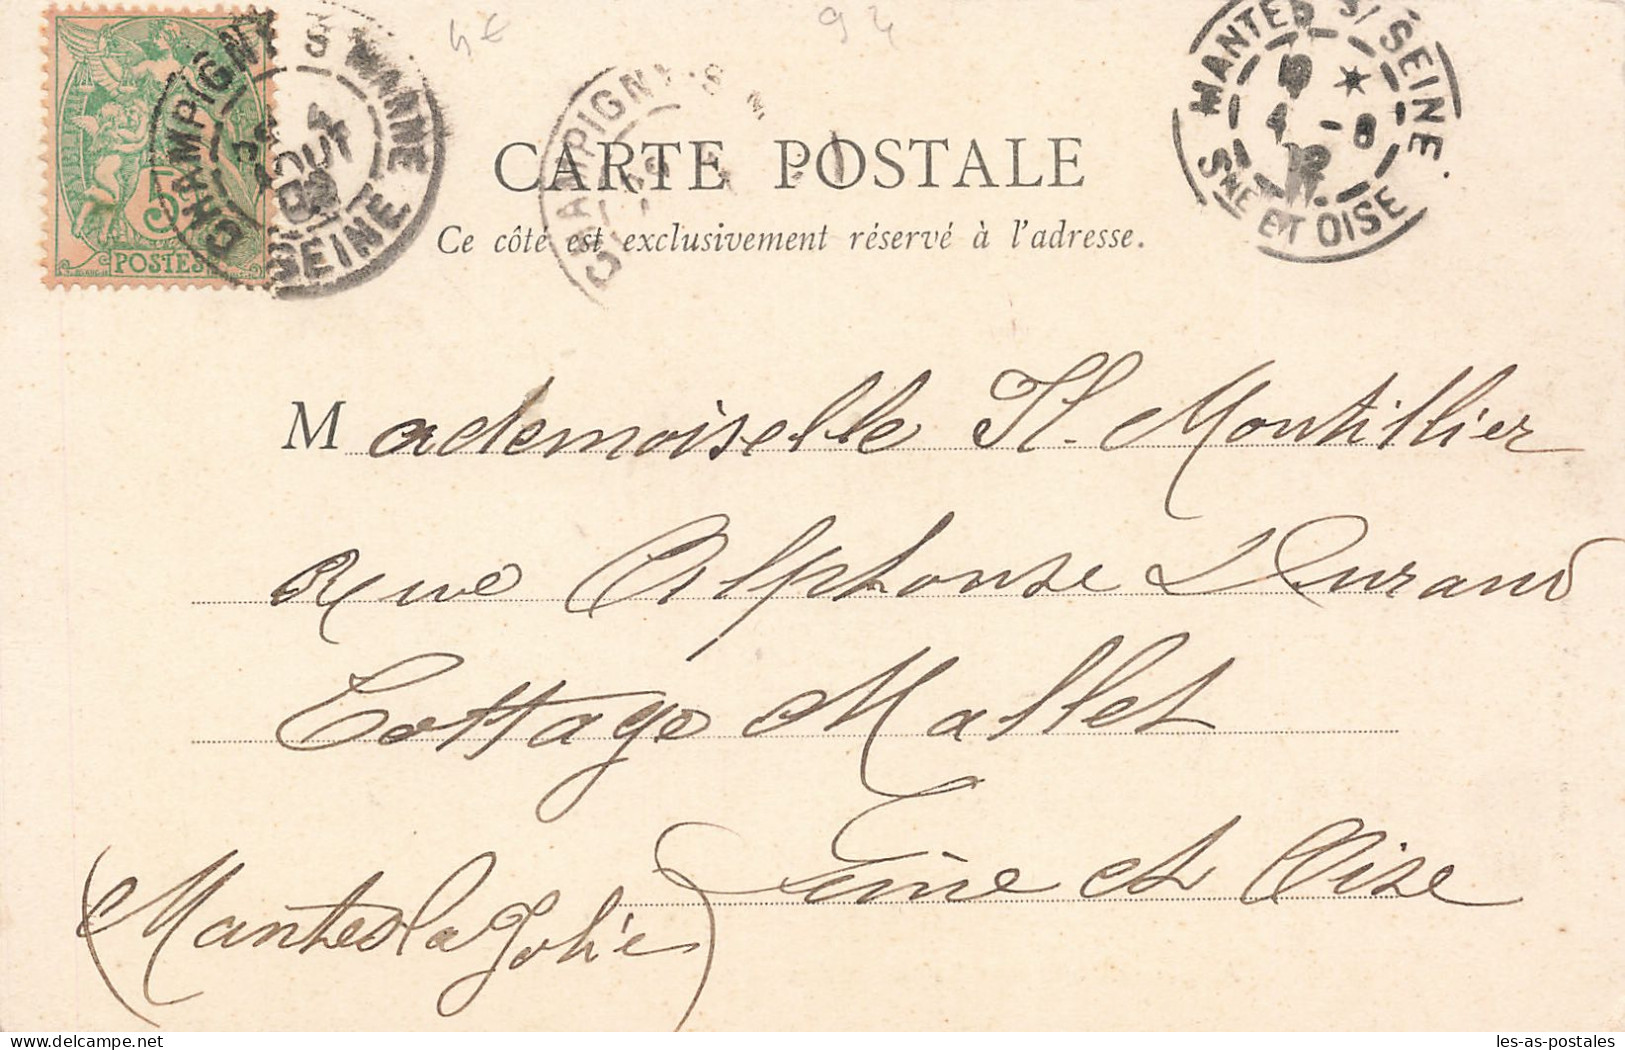 4€
94
CHAMPIGNY S MARNE
AOUT
02
SEINE
5
POSTES
CHAMPIGNY S
MANTES S/ SEINE
4 -8
02
Sne ET OISE
CARTE POSTALE
Ce côté est exclusivement réservé à l'adresse.
Mademoiselle H. Montillier
Rue Alphonse Durand
Cottage Mallet
Seine et Oise
(Mantes la Jolie)
les-as-postales